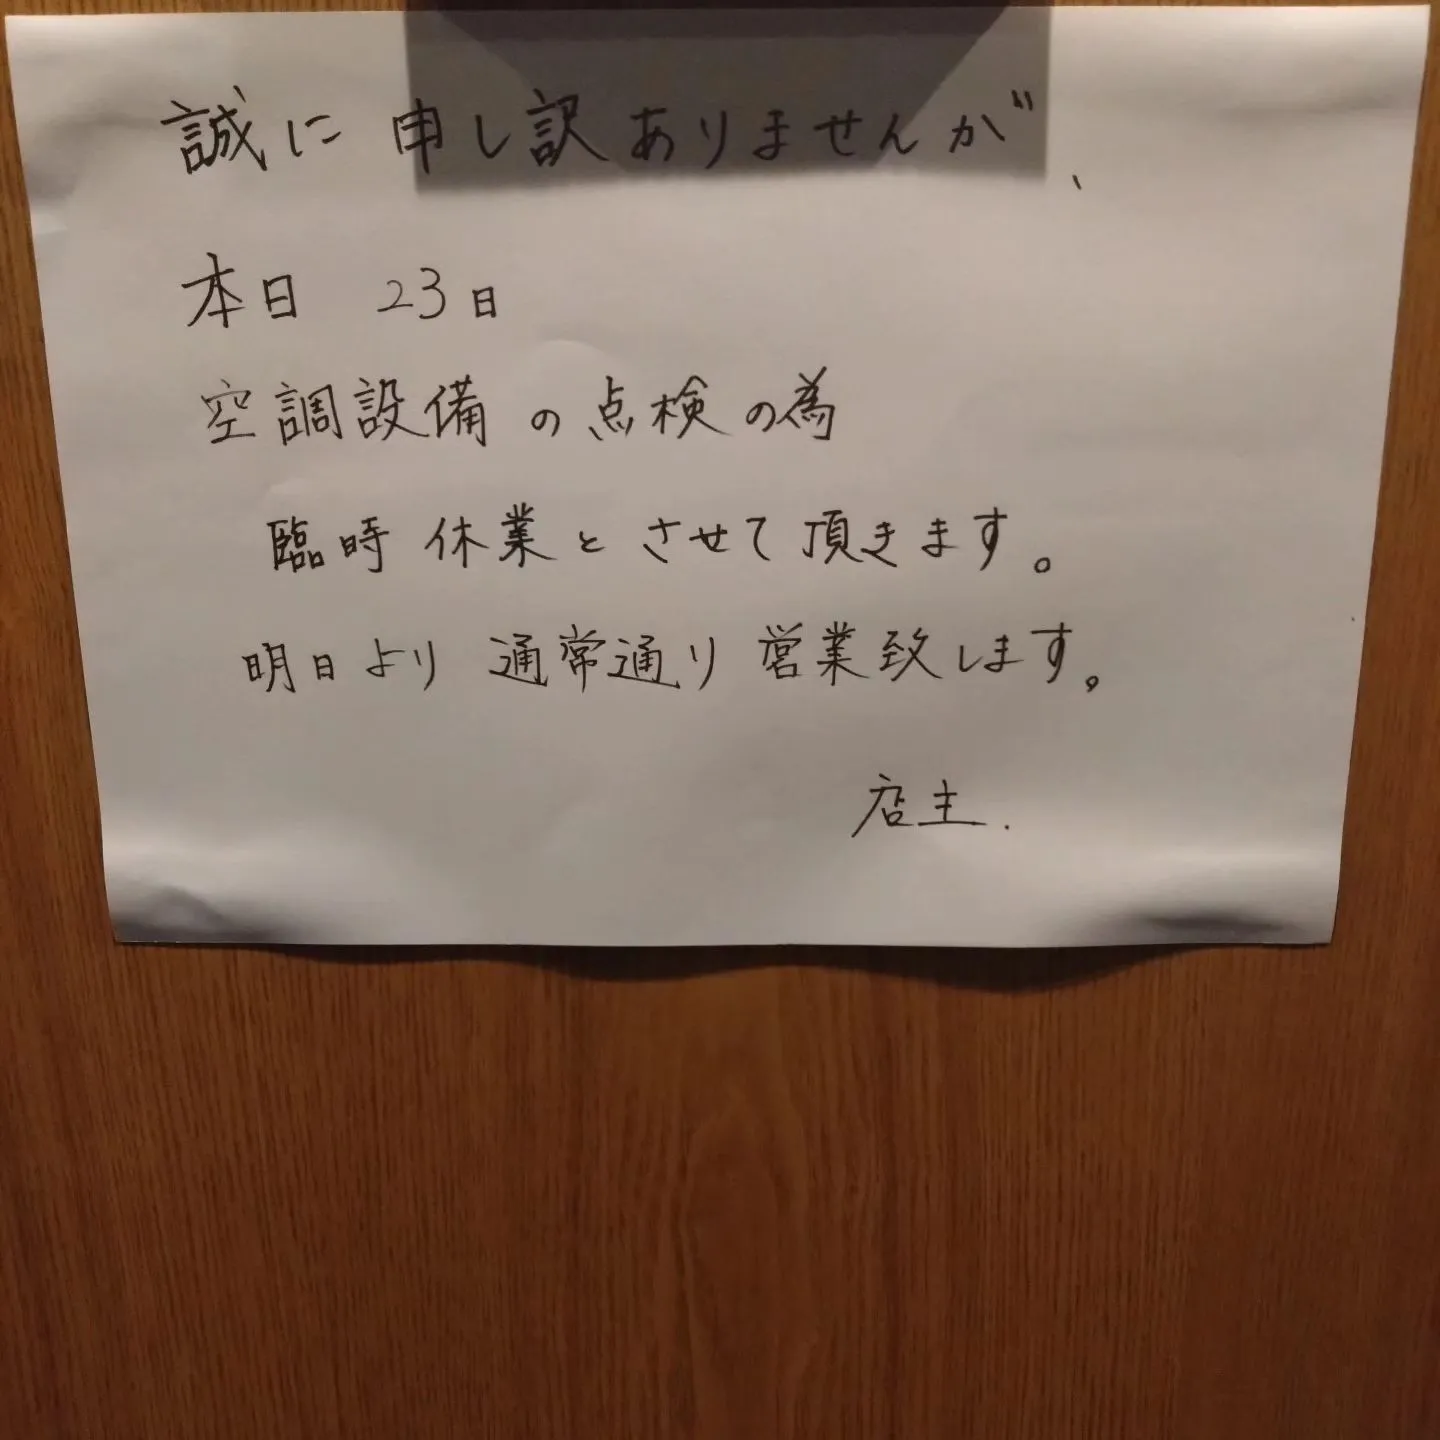 誠に申し訳ありませんが、
本日 23日
空調設備の点検の為
臨時休業とさせて頂きます。
明日より通常通り営業致します。
店主.